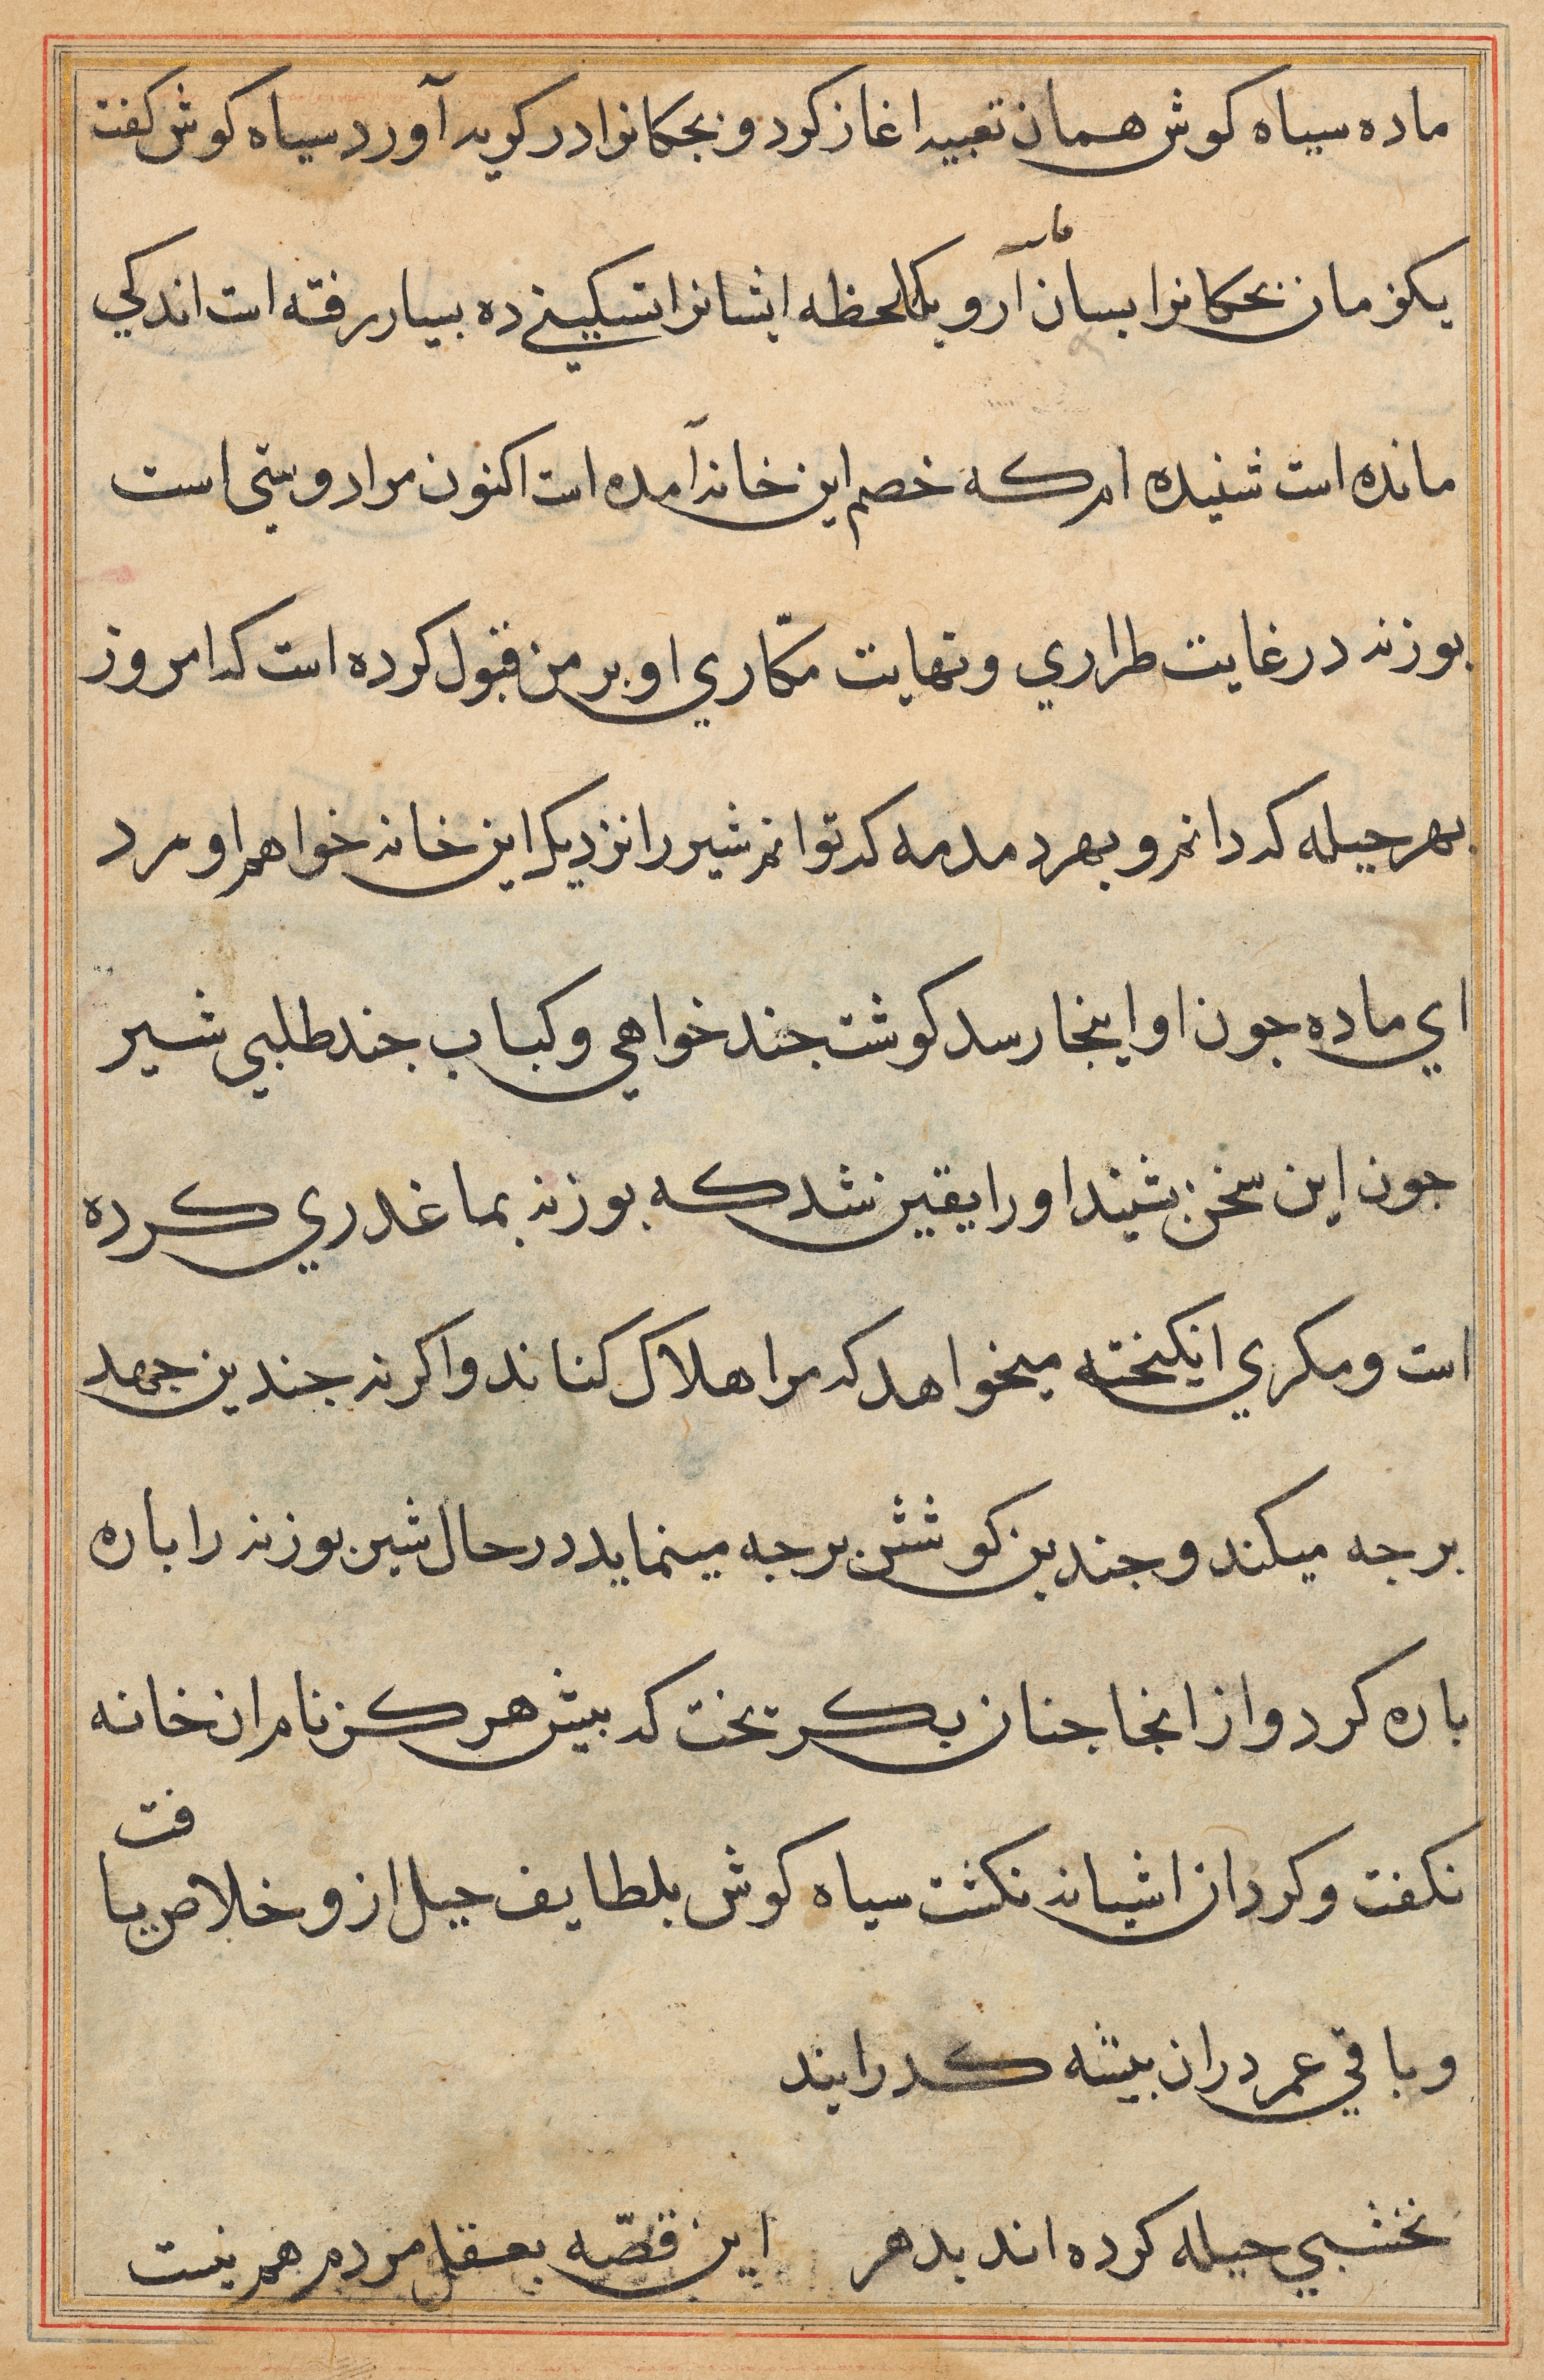 ماده سیاه کوش همان تعبیه اغاز کرد و بجکانرا در کریه آورد سیاه کوش کفت
یکزمان بجکانرا بسان آر و یکلحظه ایشانرا تسکینی ده بسیار رفته است اندکی
مانده است شنیده ام که خصم این خانه آمده است اکنون مرا دوستی است
بوزنه در غایت طراری و نهایت مکّاری او بر من قبول کرده است که امروز
بهر حیله که دانم و بهر دمدمه که توانم شیر را نزدیک این خانه خواهم اورد
ای ماده جون او اینجا رسد کوشت جند خواهی و کباب جند طلبی شیر
جون این سخن بشنید او را یقین شد که بوزنه بما غدری کرده
است و مکری انکیخته میخواهد که مرا هلاک کناند و اکر نه جندین جهد
برجه میکند و جندین کوشش برجه مینماید در حال شیر بوزنه را باره
باره کرد و از انجا جنان بکریخت که بیش هرکز نام ان خانه
نکفت و کرد ان اشیانه نکشت سیاه کوش بلطایف حیل ازو خلاص یافت
و باقی عمر در ان بیشه کدرانید
نخشبی حیله کرده اند بدهر این قصّه بعقل مردم هم نیست